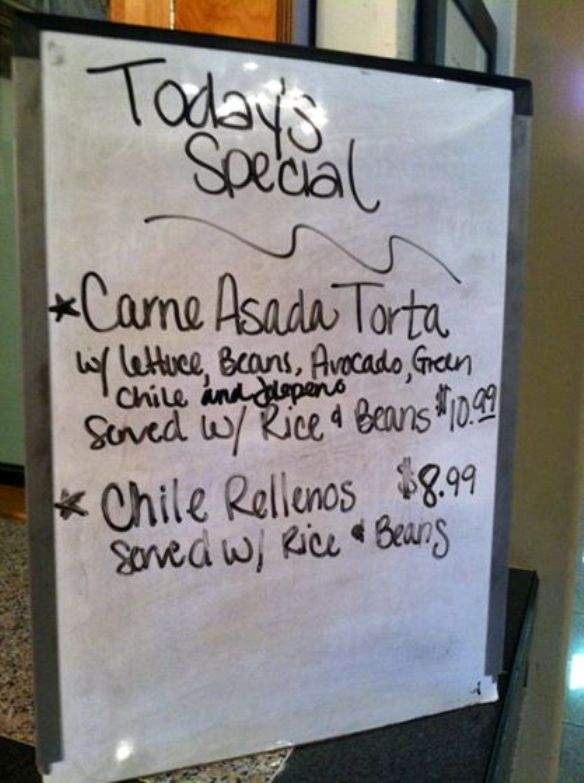 Today's
Special
*Carne Asada Torta
w/ lettuce, Beans, Avocado, Green
Chile and Jalepeno
Served w/ Rice & Beans $10.99
* Chile Rellenos $8.99
Served w/ Rice & Beans